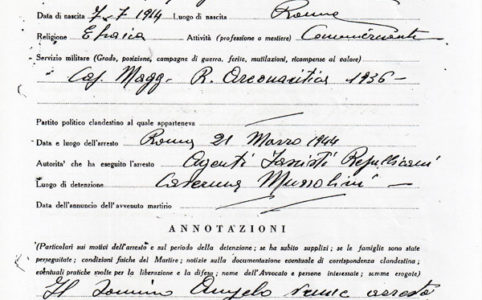 Data di nascita 7-7-1914 Luogo di nascita Roma
Religione Ebraica Attività (professione o mestiere) Commerciante
Servizio militare (Grado, posizione, campagne di guerra, ferite, mutilazioni, ricompense al valore)
Cap. Magg. R. Areonautica 1936 -
Partito politico clandestino al quale apparteneva
Data e luogo dell'arresto Roma 21 Marzo 1944
Autorità che ha eseguito l'arresto Agenti Fascisti Repubblicani
Luogo di detenzione Caserma Mussolini -
Data dell'annuncio dell'avvenuto martirio
ANNOTAZIONI
(Particolari sui motivi dell'arresto e sul periodo della detenzione; se ha subito supplizi; se le famiglie sono state
perseguitate; condizioni fisiche del Martire; notizie sulla documentazione eventuale di corrispondenza clandestina;
eventuali pratiche svolte per la liberazione e la difesa; nome dell'Avvocato e persone interessate; somme erogate)
Il Angelo venne